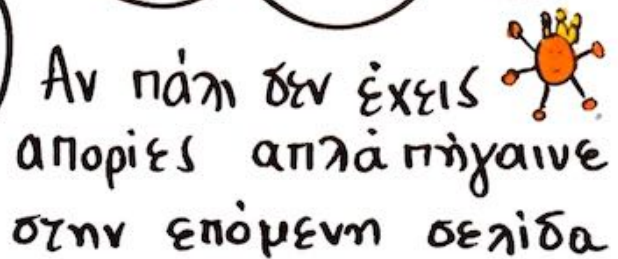 Αν πάλι δεν έχεις
απορίες απλά πήγαινε
στην επόμενη σελίδα